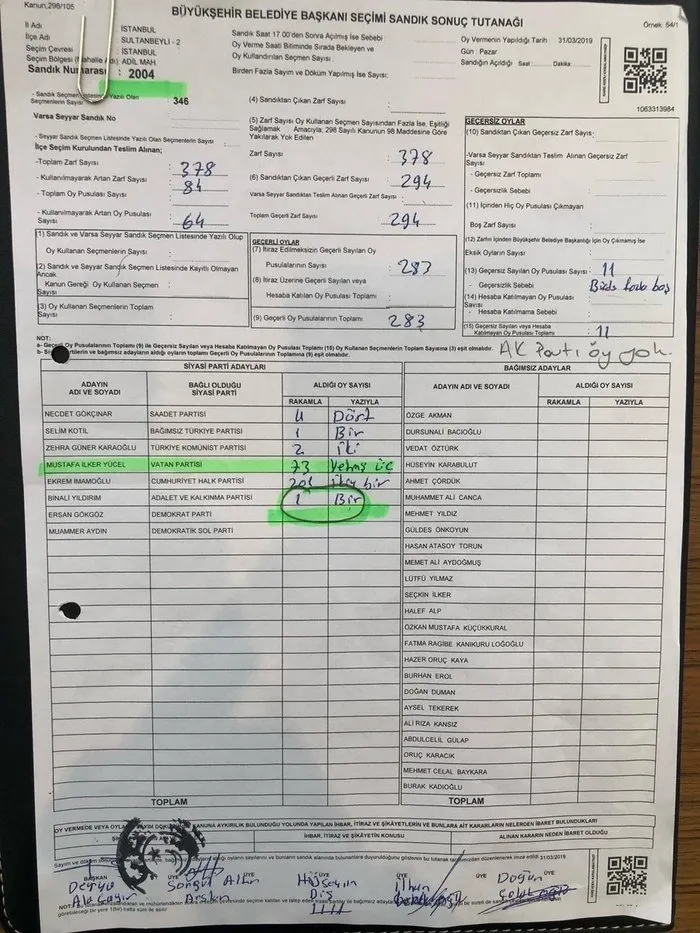 Kanun,298/105
BÜYÜKŞEHİR BELEDİYE BAŞKANI SEÇİMİ SANDIK SONUÇ TUTANAĞI
Örnek: 54/1
İl Adı : İSTANBUL
İlçe Adı : SULTANBEYLİ - 2
Seçim Çevresi : İSTANBUL
Seçim Bölgesi (Mahalle Adı): ADİL MAH.
Sandık Numarası : 2004
Sandık Saat 17.00'den Sonra Açılmış İse Sebebi :
Oy Verme Saati Bitiminde Sırada Bekleyen ve
Oy Kullandırılan Seçmen Sayısı :
Birden Fazla Sayım ve Döküm Yapılmış İse Sayısı:
Oy Vermenin Yapıldığı Tarih 31/03/2019
Gün : Pazar
Sandığın Açıldığı Saat : Dakika:
1063313984
- Sandık Seçmen Listesinde Yazılı Olan
Seçmenlerin Sayısı : 346
Varsa Seyyar Sandık No
- Seyyar Sandık Seçmen Listesinde Yazılı Olan Seçmenlerin Sayısı :
İlçe Seçim Kurulundan Teslim Alınan;
-Toplam Zarf Sayısı : 378
- Kullanılmayarak Artan Zarf Sayısı : 84
- Toplam Oy Pusulası Sayısı :
- Kullanılmayarak Artan Oy Pusulası
Sayısı : 64
(4) Sandıktan Çıkan Zarf Sayısı :
(5) Zarf Sayısı Oy Kullanan Seçmen Sayısından Fazla İse, Eşitliği
Sağlamak Amacıyla; 298 Sayılı Kanunun 98 Maddesine Göre
Yakılarak Yok Edilen
Zarf Sayısı : 378
(6) Sandıktan Çıkan Geçerli Zarf Sayısı : 294
Varsa Seyyar Sandıktan Teslim Alınan Geçerli Zarf Sayısı :
Toplam Geçerli Zarf Sayısı : 294
GEÇERSİZ OYLAR
(10) Sandıktan Çıkan Geçersiz Zarf Sayısı :
-Varsa Seyyar Sandıktan Teslim Alınan Geçersiz Zarf
Sayısı :
- Geçersiz Zarf Toplamı :
- Geçersizlik Sebebi :
(11) İçinden Hiç Oy Pusulası Çıkmayan
Boş Zarf Sayısı :
(12) Zarfın İçinden Büyükşehir Belediye Başkanlığı İçin Oy Çıkmamış İse
Eksik Oyların Sayısı :
(13) Geçersiz Sayılan Oy Pusulası Sayısı : 11
- Geçersizlik Sebebi :
(14) Hesaba Katılmayan Oy Pusulası
Sayısı :
- Hesaba Katılmama Sebebi :
(15) Geçersiz Sayılan veya Hesaba
Katılmayan Oy Pusulası Toplamı : 11
(1) Sandık ve Varsa Seyyar Sandık Seçmen Listesinde Yazılı Olup
Oy Kullanan Seçmenlerin Sayısı :
(2) Sandık ve Seyyar Sandık Seçmen Listesinde Kayıtlı Olmayan
Ancak
Kanun Gereği Oy Kullanan Seçmen
Sayısı :
(3) Oy Kullanan Seçmenlerin Toplam
Sayısı :
GEÇERLİ OYLAR
(7) İtiraz Edilmeksizin Geçerli Sayılan Oy
Pusulalarının Sayısı : 283
(8) İtiraz Üzerine Geçerli Sayılan veya
Hesaba Katılan Oy Pusulası Toplamı :
(9) Geçerli Oy Pusulalarının Toplamı : 283
NOT:
a- Geçerli Oy Pusulalarının Toplamı (9) ile Geçersiz Sayılan veya Hesaba Katılmayan Oy Pusulası Toplamı (15) Oy Kullanan Seçmenlerin Toplam Sayısına (3) eşit olmalıdır.
b- Siyasi partilerin ve bağımsız adayların aldığı oyların toplamı Geçerli Oy Pusulalarının Toplamına (9) eşit olmalıdır.
AK Parti oy yok
SİYASİ PARTİ ADAYLARI
BAĞIMSIZ ADAYLAR
ADAYIN ADI VE SOYADI
BAĞLI OLDUĞU SİYASİ PARTİ
ALDIĞI OY SAYISI
RAKAMLA YAZIYLA
ADAYIN ADI VE SOYADI
ALDIĞI OY SAYISI
RAKAMLA YAZIYLA
NECDET GÖKÇINAR SAADET PARTİSİ 4 Dört
SELİM KOTİL BAĞIMSIZ TÜRKİYE PARTİSİ 1 Bir
ZEHRA GÜNER KARAOĞLU TÜRKİYE KOMÜNİST PARTİSİ 2 İki
MUSTAFA İLKER YÜCEL VATAN PARTİSİ 73 Yetmiş üç
EKREM İMAMOĞLU CUMHURİYET HALK PARTİSİ 201
BİNALİ YILDIRIM ADALET VE KALKINMA PARTİSİ 1 Bir
ERSAN GÖKGÖZ DEMOKRAT PARTİ
MUAMMER AYDIN DEMOKRATİK SOL PARTİ
ÖZGE AKMAN
DURSUNALİ BACIOĞLU
VEDAT ÖZTÜRK
HÜSEYİN KARABULUT
AHMET ÇÖRDÜK
MUHAMMET ALİ CANCA
MEHMET YILDIZ
GÜLDES ÖNKOYUN
HASAN ATASOY TORUN
MEMET ALİ AYDOĞMUŞ
LÜTFÜ YILMAZ
SEÇKİN İLKER
HALEF ALP
ÖZKAN MUSTAFA KÜÇÜKKURAL
FATMA RAGİBE KANIKURU LOĞOĞLU
HAZER ORUÇ KAYA
BURHAN EROL
DOĞAN DUMAN
AYSEL TEKEREK
ALİ RIZA KANSIZ
ABDULCELİL GÜLAP
ORUÇ KARACIK
MEHMET CELAL BAYKARA
BURAK KADIOĞLU
TOPLAM
TOPLAM
OY VERMEDE VEYA OYLARIN SAYIM DÖKÜMÜNDE KANUNA AYKIRILIK BULUNDUĞU YOLUNDA YAPILAN İHBAR, İTİRAZ VE ŞİKAYETLERİN VE BUNLARA AİT KARARLARIN NELERDEN İBARET BULUNDUKLARI
İHBAR, İTİRAZ VE ŞİKAYETİN KONUSU
ALINAN KARARIN NEDEN İBARET OLDUĞU
31/03/2019
BAŞKAN ÜYE ÜYE ÜYE ÜYE
Derya
Songül Altın
Arslan
Hüseyin
İlhan
Doğan